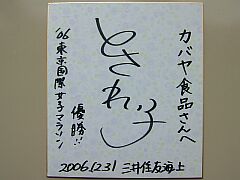 カバヤ食品さんへ
とされい子
優勝!!
'06東京国際女子マラソン
2006.12.31 三井住友海上